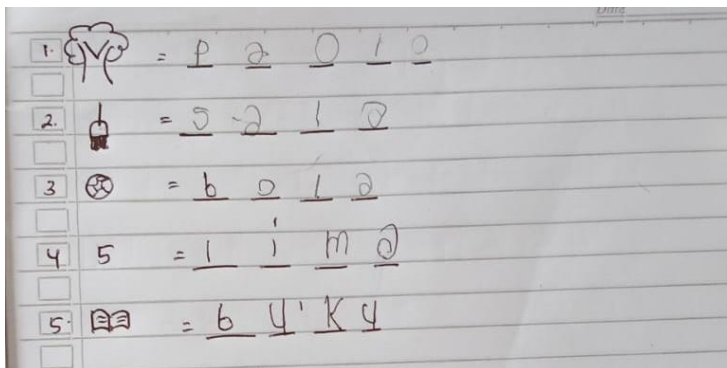 Date
1. = p a o l o
2. = s a l a
3 = b o l a
4 5 = l i m a
5. = b u k u